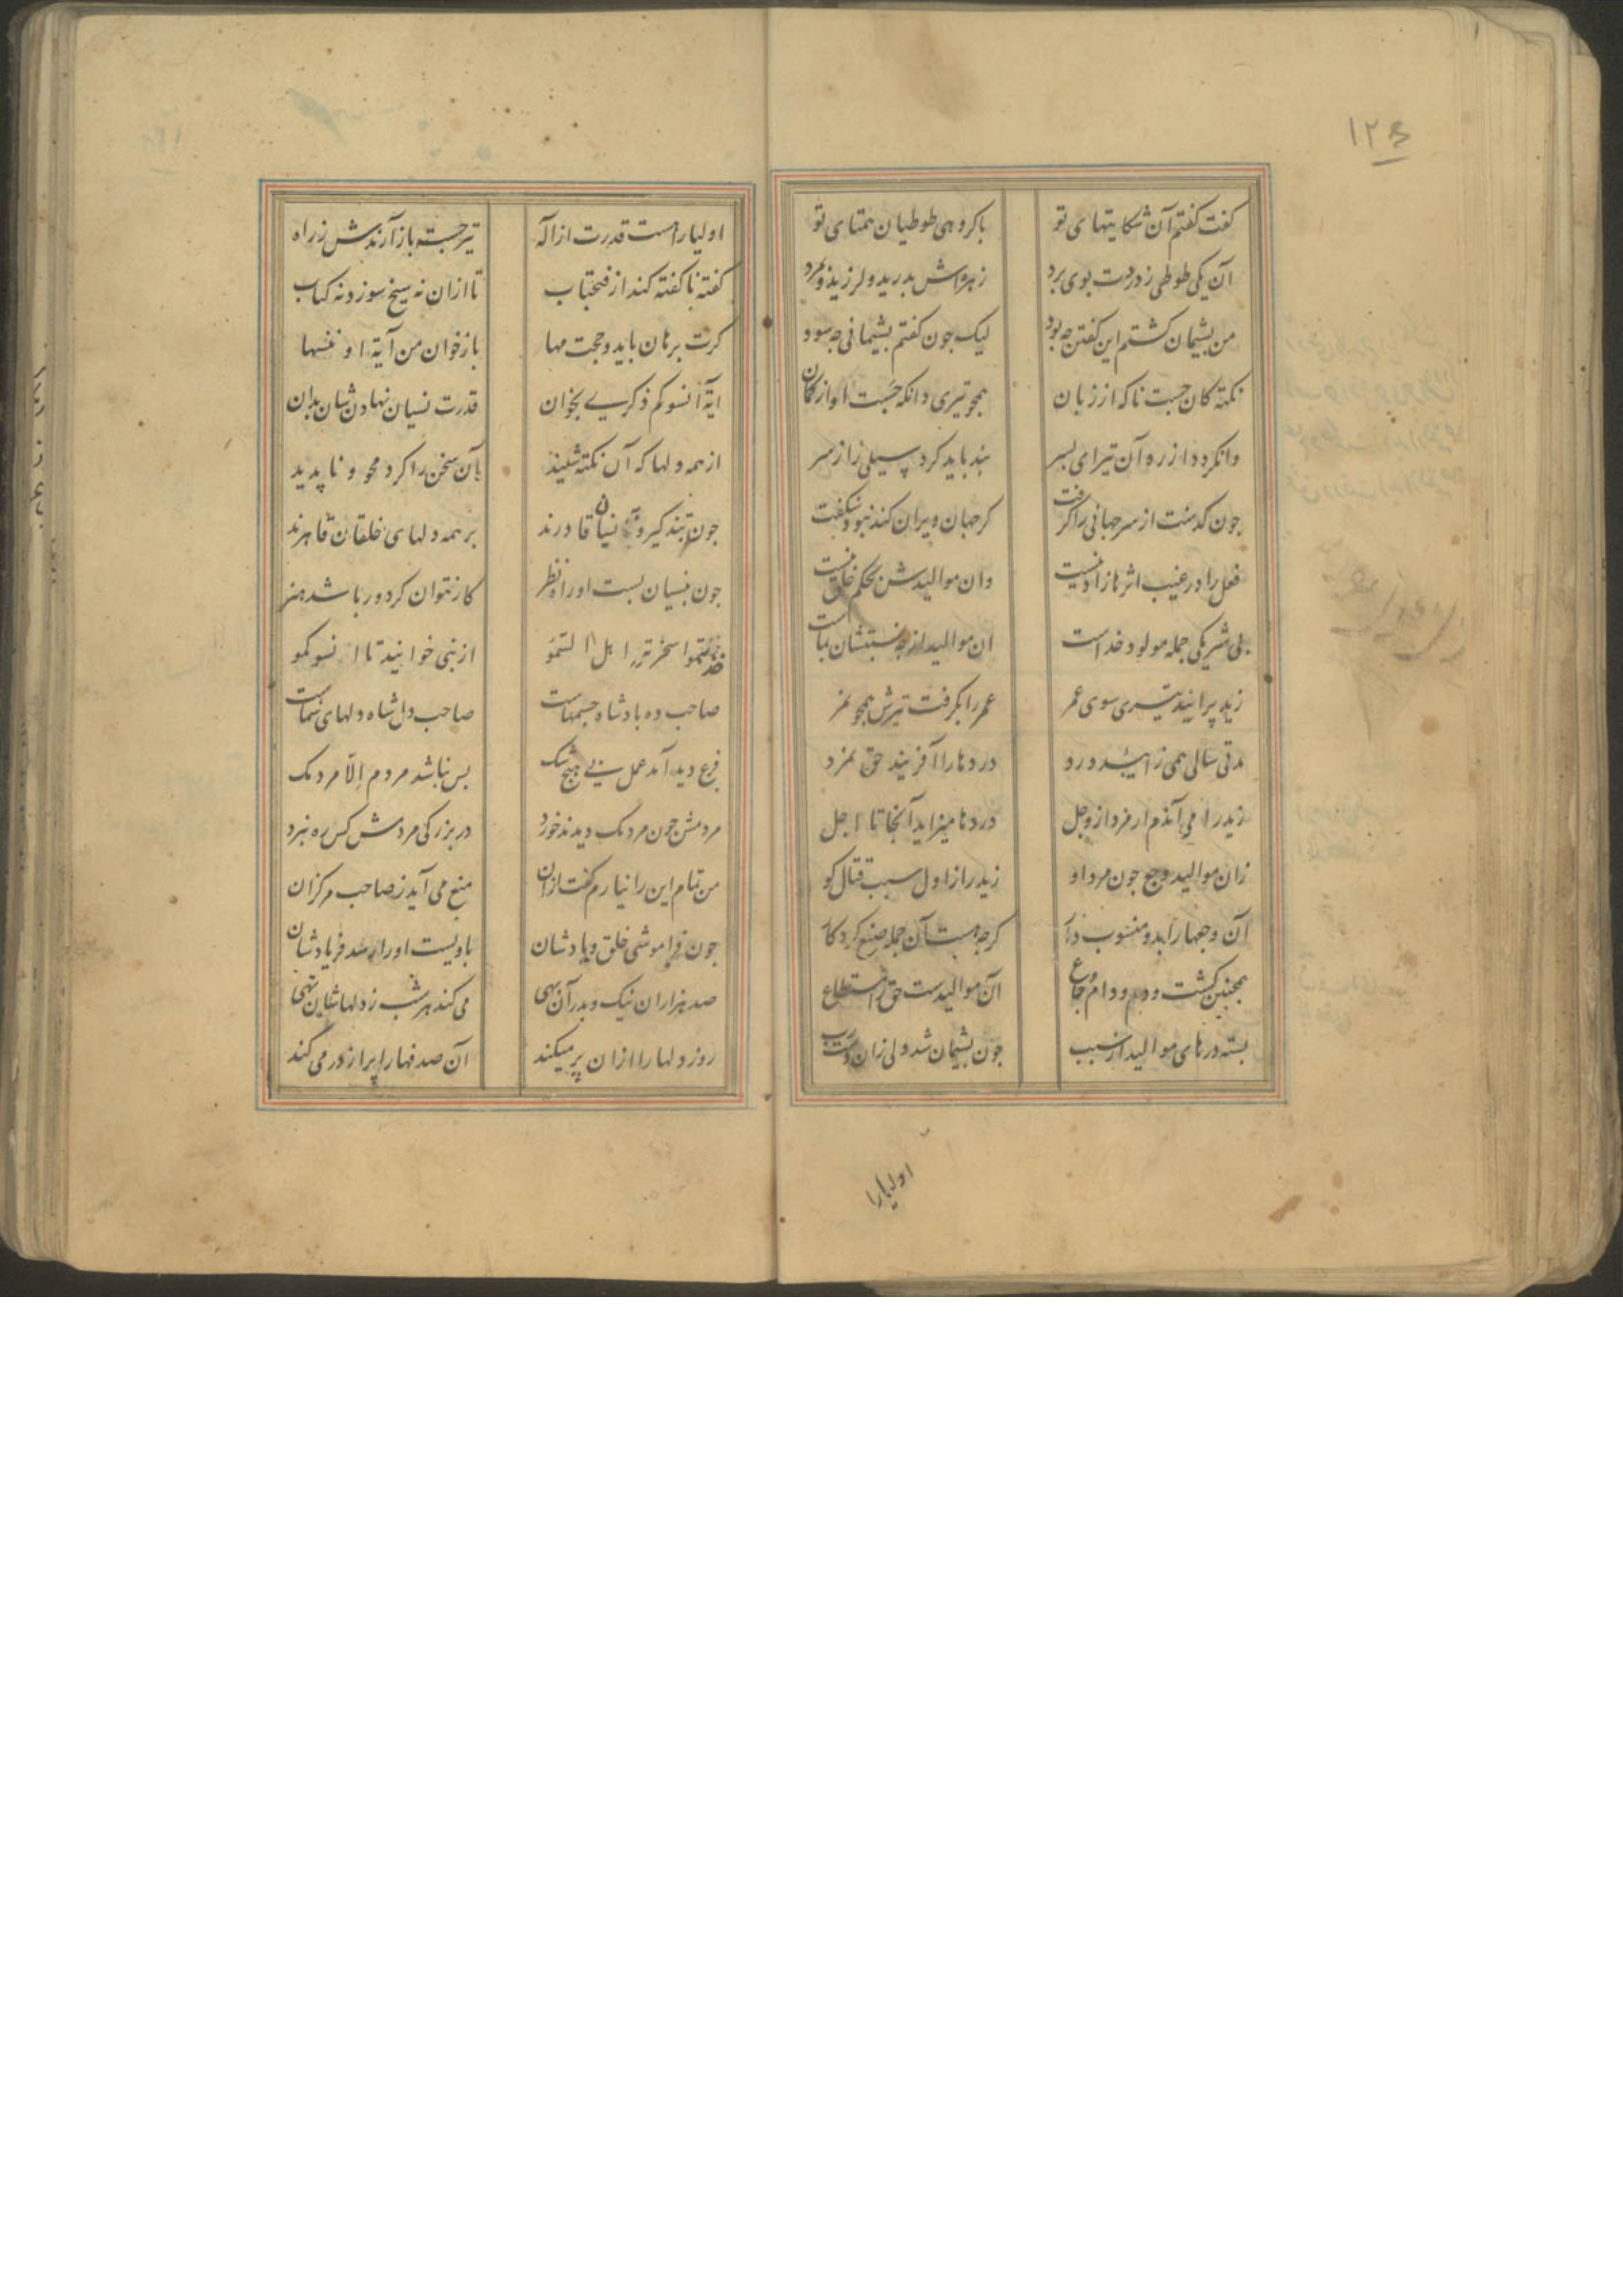 ١٢٤
کفت کفتم آن شکایتهای تو باکروهی طوطیان همتای تو
آن یکی طوطی ز دردت بوی برد زهره‌اش بدرید و لرزید و بمرد
من بشیمان کشتم این کفتن جه بود لیک جون کفتم بشیمانی جه سود
نکته کان جست ناکه از زبان همجو تیری دانکه جست او از کمان
وانکردد از ره آن تیر ای بسر بند باید کرد سیلی را ز سر
جون کذشت از سر جهانی را کرفت کر جهان ویران کند نبود شکفت
فعل را در غیب اثرها زادنیست وان موالیدش بحکم خلق نیست
بی شریکی جمله مولود خداست آن موالید ار جه نسبتشان بماست
زید پرانید تیری سوی عمر عمر را بکرفت تیرش همجو نمر
مدتی سالی همی زایید درد دردها را آفریند حق نمرد
زید رامی آندم ار مرد از وجل دردها میزاید آنجا تا اجل
زان موالید وجع جون مرد او زید را ز اول سبب قتال کو
آن وجعها را بدو منسوب دار کرجه هست آن جمله صنع کردکار
همجنین کشت و دم و دام و جماع آن موالیدست حق را مستطاع
بسته درهای موالید از سبب جون بشیمان شد ولی زان دست رب
اولیارا
اولیا را هست قدرت از اله تیر جسته باز آرندش ز راه
کفته ناکفته کند از فتح باب تا ازان نه سیخ سوزد نه کباب
کرت برهان باید و حجت مها بازخوان من آیة او ننسها
آیة انسوکم ذکری بخوان قدرت نسیان نهادن شان بدان
از همه دلها که آن نکته شنید آن سخن را کرد محو و ناپدید
جون بتذکیر و نسیان قادرند بر همه دلهای خلقان قاهرند
جون بنسیان بست او راه نظر کار نتوان کرد ور باشد هنر
خذتموا سخریة اهل السمو از نبی خوانید تا انسوکمو
صاحب ده بادشاه جسمهاست صاحب دل شاه دلهای شماست
فرع دید آمد عمل بی هیچ شک بس نباشد مردم الّا مردمک
مردمش جون مردمک دیدند خرد در بزرکی مردمش کس ره نبرد
من تمام این را نیارم کفت ازان منع می آید ز صاحب مرکزان
جون فراموشی خلق و یادشان باویست او را رسد فریادشان
صد هزاران نیک و بد را آن بهی می کند هر شب ز دلهاشان تهی
روز دلها را ازان پر میکند آن صدفها را پر از در می کند